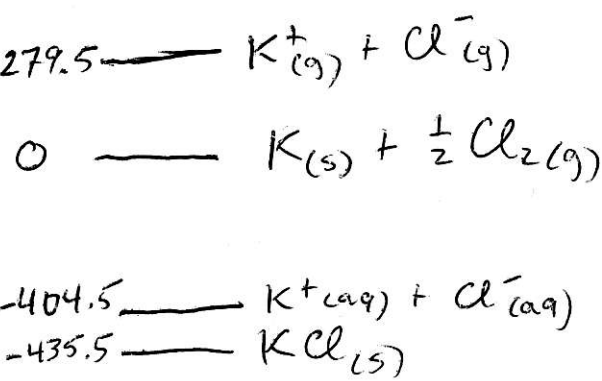 279.5 — K⁺(g) + Cl⁻(g)
0 — K(s) + ½ Cl₂(g)
-404.5 — K⁺(aq) + Cl⁻(aq)
-435.5 — KCl(s)